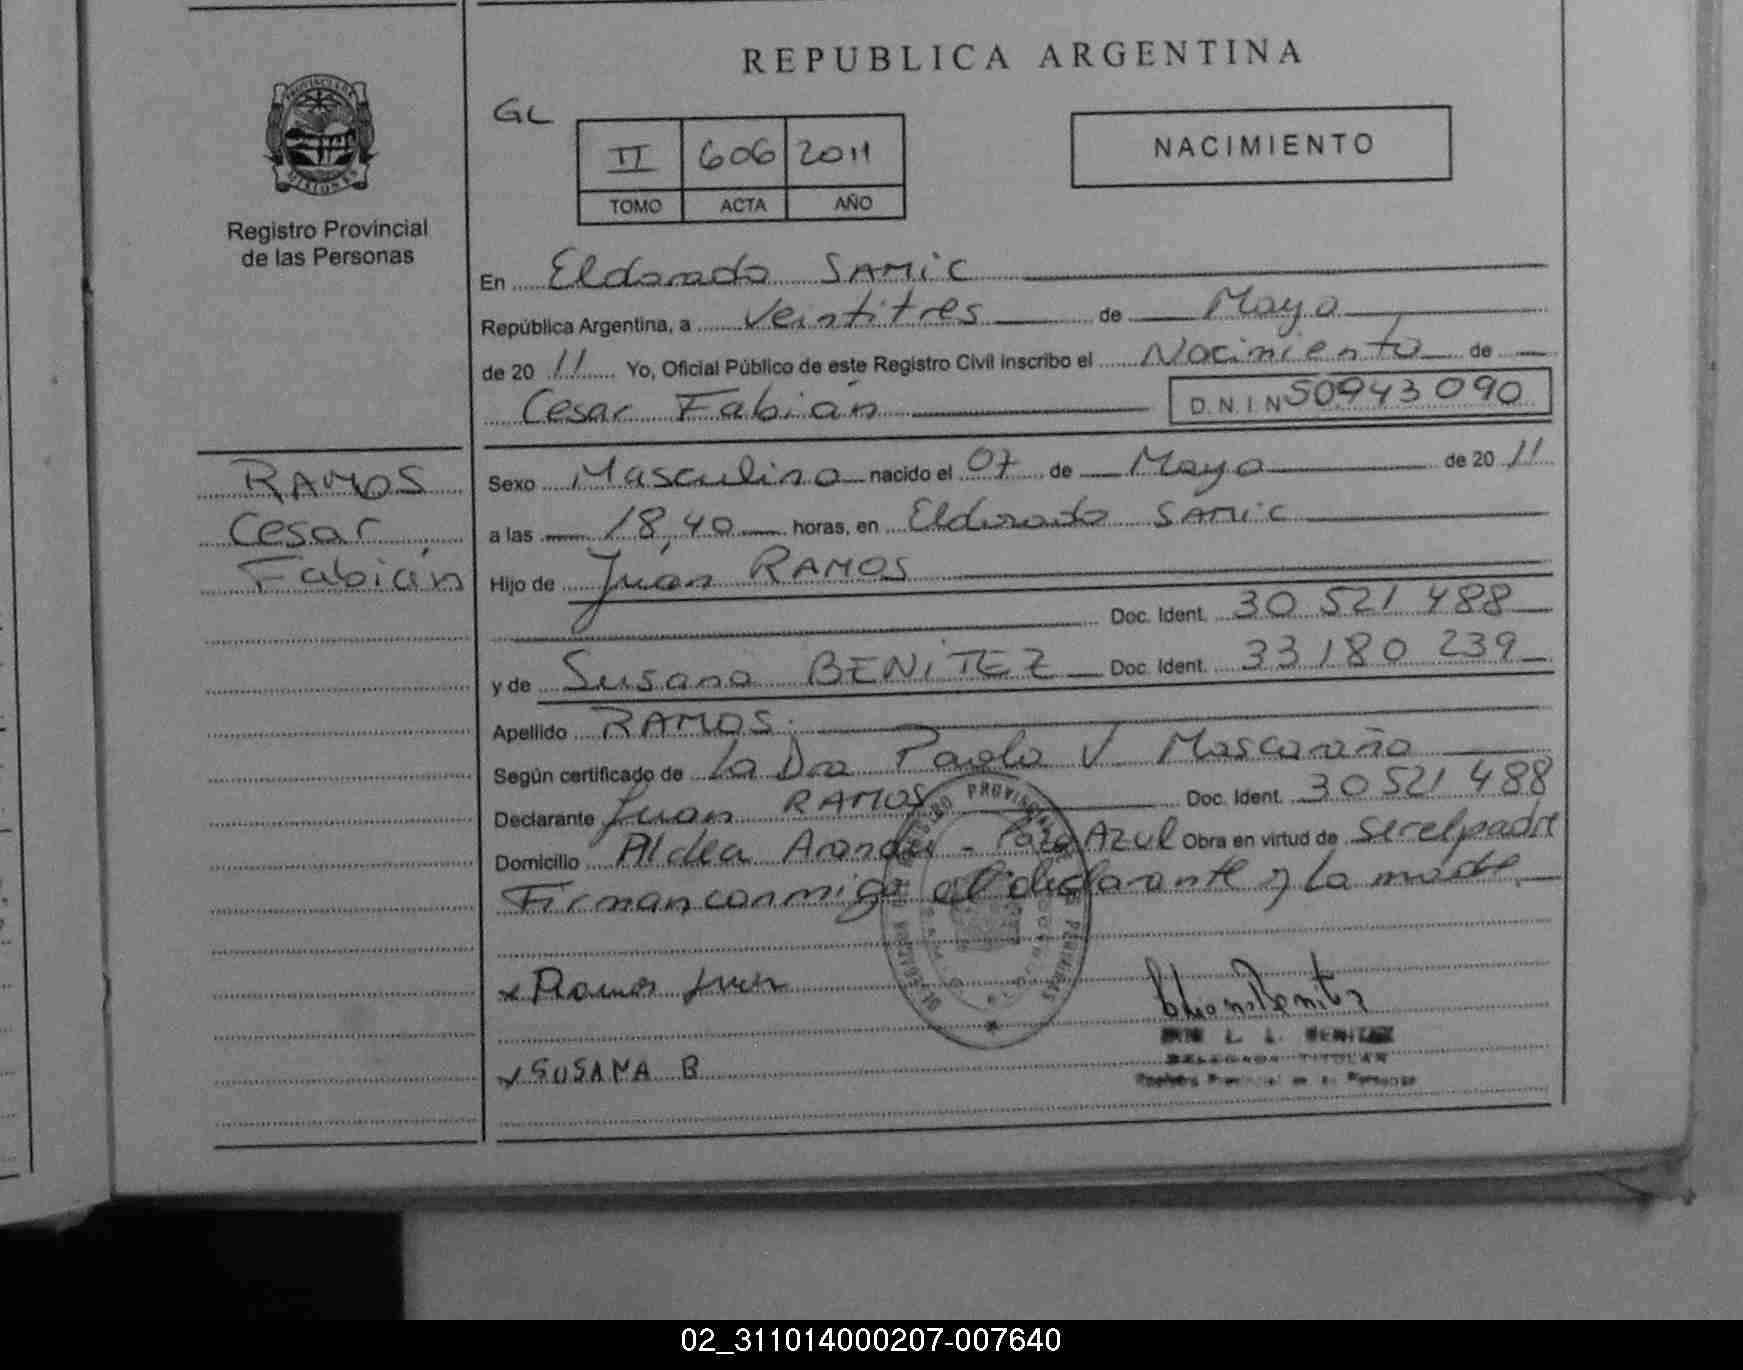 REPUBLICA ARGENTINA
GL
II 606 2011
TOMO ACTA AÑO
NACIMIENTO
PROVINCIA DE
MISIONES
Registro Provincial
de las Personas
RAMOS
Cesar
Fabián
En Eldorado SAMIC
República Argentina, a Veintitres de Mayo
de 20 11 Yo, Oficial Público de este Registro Civil inscribo el Nacimiento de
Cesar Fabián D.N.I.N 50943090
Sexo Masculino nacido el 07 de Mayo de 20 11
a las 18,40 horas, en Eldorado SAMIC
Hijo de Juan RAMOS
Doc. Ident. 30 521 488
y de Susana BENITEZ Doc. Ident. 33 180 239
Apellido RAMOS.
Según certificado de La Dra Paola V.
Declarante Juan RAMOS Doc. Ident. 30 521 488
Domicilio Aldea Arandu - Pozo Azul Obra en virtud de ser el padre
Firman conmigo el declarante y la madre
x Ramos Juan
x SUSANA B
BENITEZ
DELEGADA TITULAR
Registro Provincial de las Personas
02_311014000207-007640